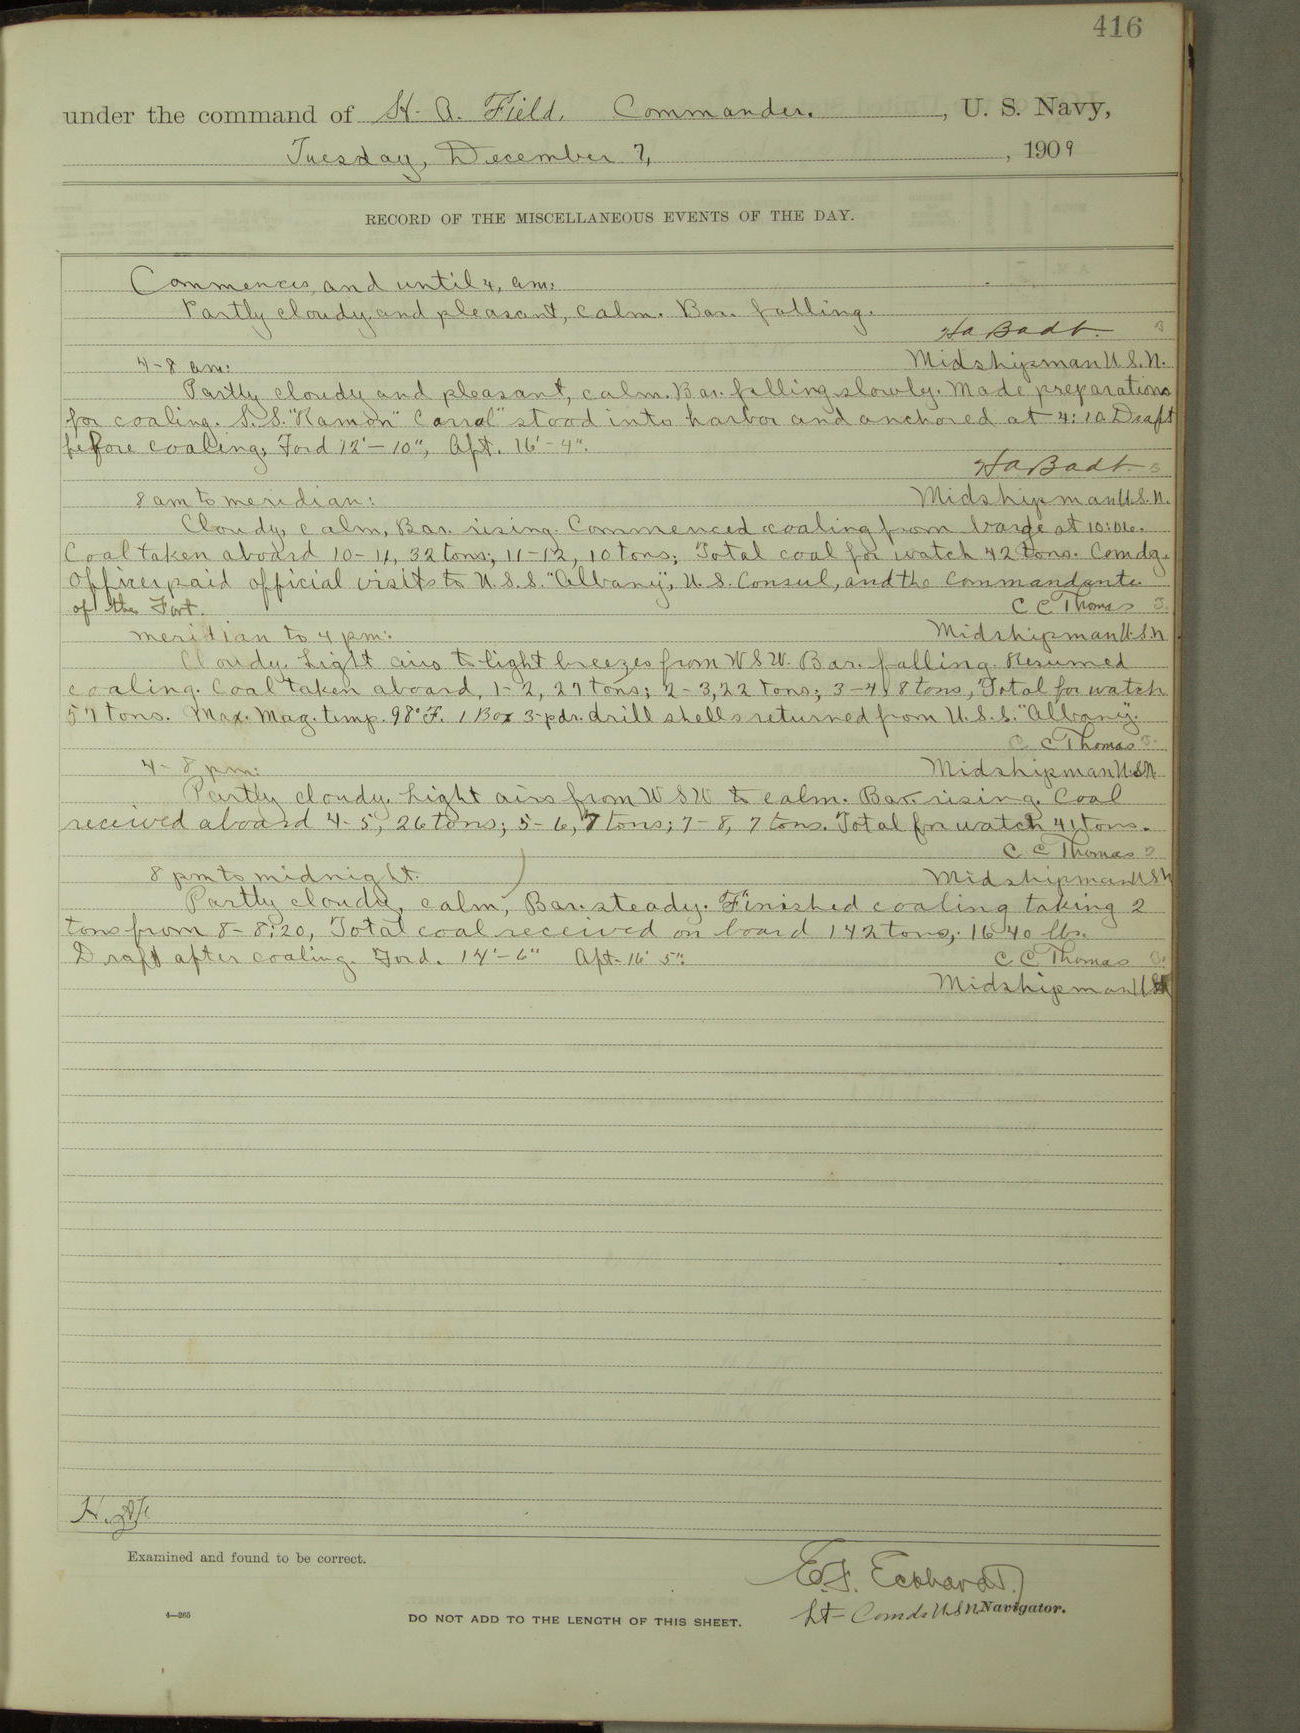 416
under the command of H. A. Field, Commander. , U. S. Navy,
Tuesday, December 7, , 1909
RECORD OF THE MISCELLANEOUS EVENTS OF THE DAY.
Commences and until 4, am:
Partly cloudy and pleasant, calm. Bar. falling.
Ha Badt.
4-8 am: Midshipman U.S.N.
Partly cloudy and pleasant, calm. Bar. falling slowly. Made preparations
for coaling. S.S. "Ramon" Corral" stood into harbor and anchored at 4:10 Draft
before coaling; Ford 12'-10", Aft. 16'-4".
Ha Badt
8 am to meridian: Midshipman U.S.N.
Cloudy, calm, Bar. rising. Commenced coaling from barge at 10:06.
Coal taken aboard 10-11, 32 tons; 11-12, 10 tons; Total coal for watch 42 tons. Comdg.
Officer paid official visits to U.S.S. "Albany", U.S. Consul, and the Commandante
of the Fort. C C Thomas
meridian to 4 pm: Midshipman U.S.N
Cloudy. Light airs to light breezes from WSW. Bar. falling. Resumed
coaling. Coal taken aboard, 1-2, 27 tons; 2-3, 22 tons; 3-4, 8 tons, Total for watch
57 tons. Max. Mag. temp. 98° F. 1 Box 3-pdr. drill shells returned from U.S.S. "Albany".
C C Thomas
4-8 pm: Midshipman U.S.N.
Partly cloudy. Light airs from WSW to calm. Bar. rising. Coal
received aboard 4-5, 26 tons; 5-6, 7 tons; 7-8, 7 tons. Total for watch 41 tons.
C C Thomas
8 pm to midnight. Midshipman USN
Partly cloudy, calm, Bar. steady. Finished coaling taking 2
tons from 8-8:20, Total coal received on board 142 tons, 1640 lbs.
Draft after coaling. Ford. 14'-6" Aft. 16' 5". C C Thomas
Midshipman USN
H.A.F.
Examined and found to be correct.
E.F. Eckhardt
Lt-Comdr U.S.N. Navigator.
4—265 DO NOT ADD TO THE LENGTH OF THIS SHEET.